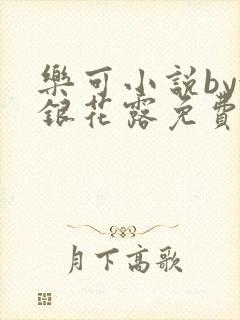 樂可小說by
銀花露免費
月下高歌